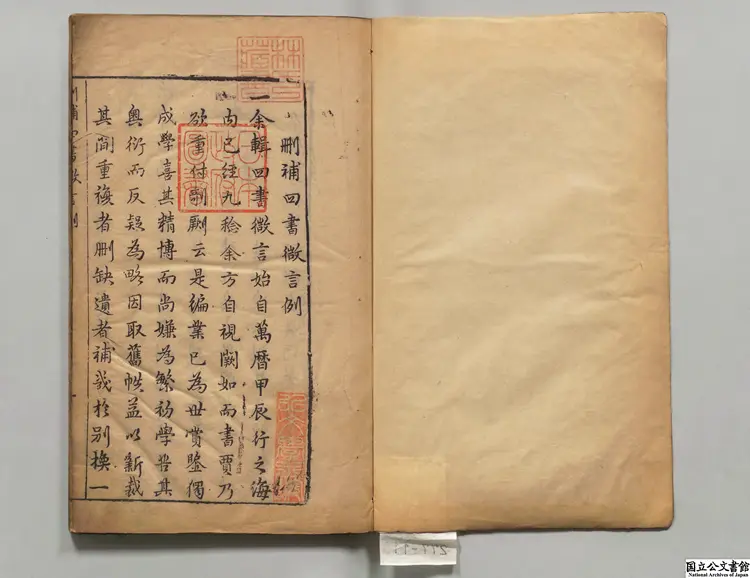 刪補四書微言例
一余輯四書微言始自萬曆甲辰行之海
內已經九稔余方自視闕如而書賈乃
欲重付剞劂云是編業已為世賞鑒獨
成學喜其精博而尚嫌為繁初學苦其
奧衍而反疑為略因取舊帙益以新裁
其間重複者刪缺遺者補幾於別換一
刪補四書微言例
国立公文書館
National Archives of Japan